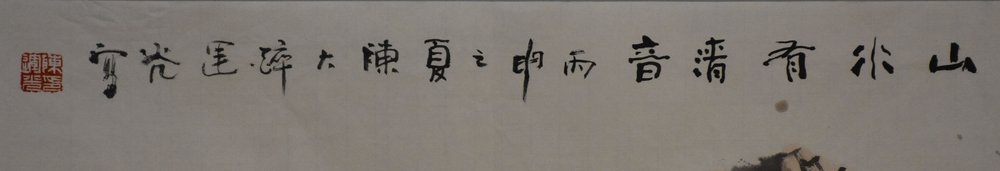 山水有清音丙申之夏陳大光寫